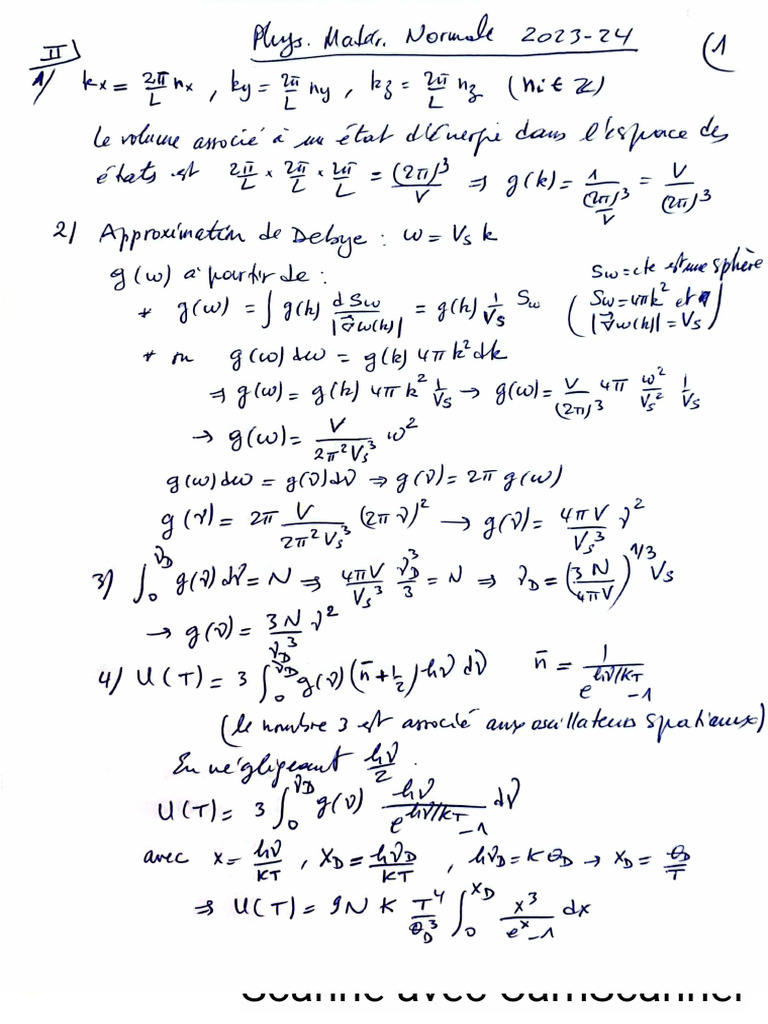 Phys. Matér. Normale 2023-24 (1
II)
1/ kx = 2π/L nx , ky = 2π/L ny , kz = 2π/L nz (ni ∈ Z)
le volume associé à un état d'énergie dans l'espace des
états est 2π/L × 2π/L × 2π/L = (2π)³/V ⇒ g(k) = 1/((2π)³/V) = V/(2π)³
2/ Approximation de Debye : ω = Vs k
g(ω) à partir de :
* g(ω) = ∫ g(k) dSω/|∇ω(k)| = g(k) 1/Vs Sω (Sω = cte est une sphère Sω = 4πk² et |∇ω(k)| = Vs)
* ou g(ω)dω = g(k) 4πk²dk
⇒ g(ω) = g(k) 4πk² 1/Vs → g(ω) = V/(2π)³ 4π ω²/Vs² 1/Vs
→ g(ω) = V/(2π²Vs³) ω²
g(ω)dω = g(ν)dν ⇒ g(ν) = 2π g(ω)
g(ν) = 2π V/(2π²Vs³) (2πν)² → g(ν) = 4πV/Vs³ ν²
3) ∫₀^νD g(ν)dν = N ⇒ 4πV/Vs³ νD³/3 = N ⇒ νD = (3N/4πV)^1/3 Vs
→ g(ν) = 3N/νD³ ν²
4/ U(T) = 3 ∫₀^νD g(ν)(n̄+1/2) hν dν n̄ = 1/(e^hν/KT −1)
(le nombre 3 est associé aux oscillateurs spatiaux)
En négligeant hν/2 .
U(T) = 3 ∫₀^νD g(ν) hν/(e^hν/KT −1) dν
avec x = hν/KT , xD = hνD/KT , hνD = KθD → xD = θD/T
⇒ U(T) = 9N K T⁴/θD³ ∫₀^xD x³/(e^x −1) dx
Scanné avec CamScanner